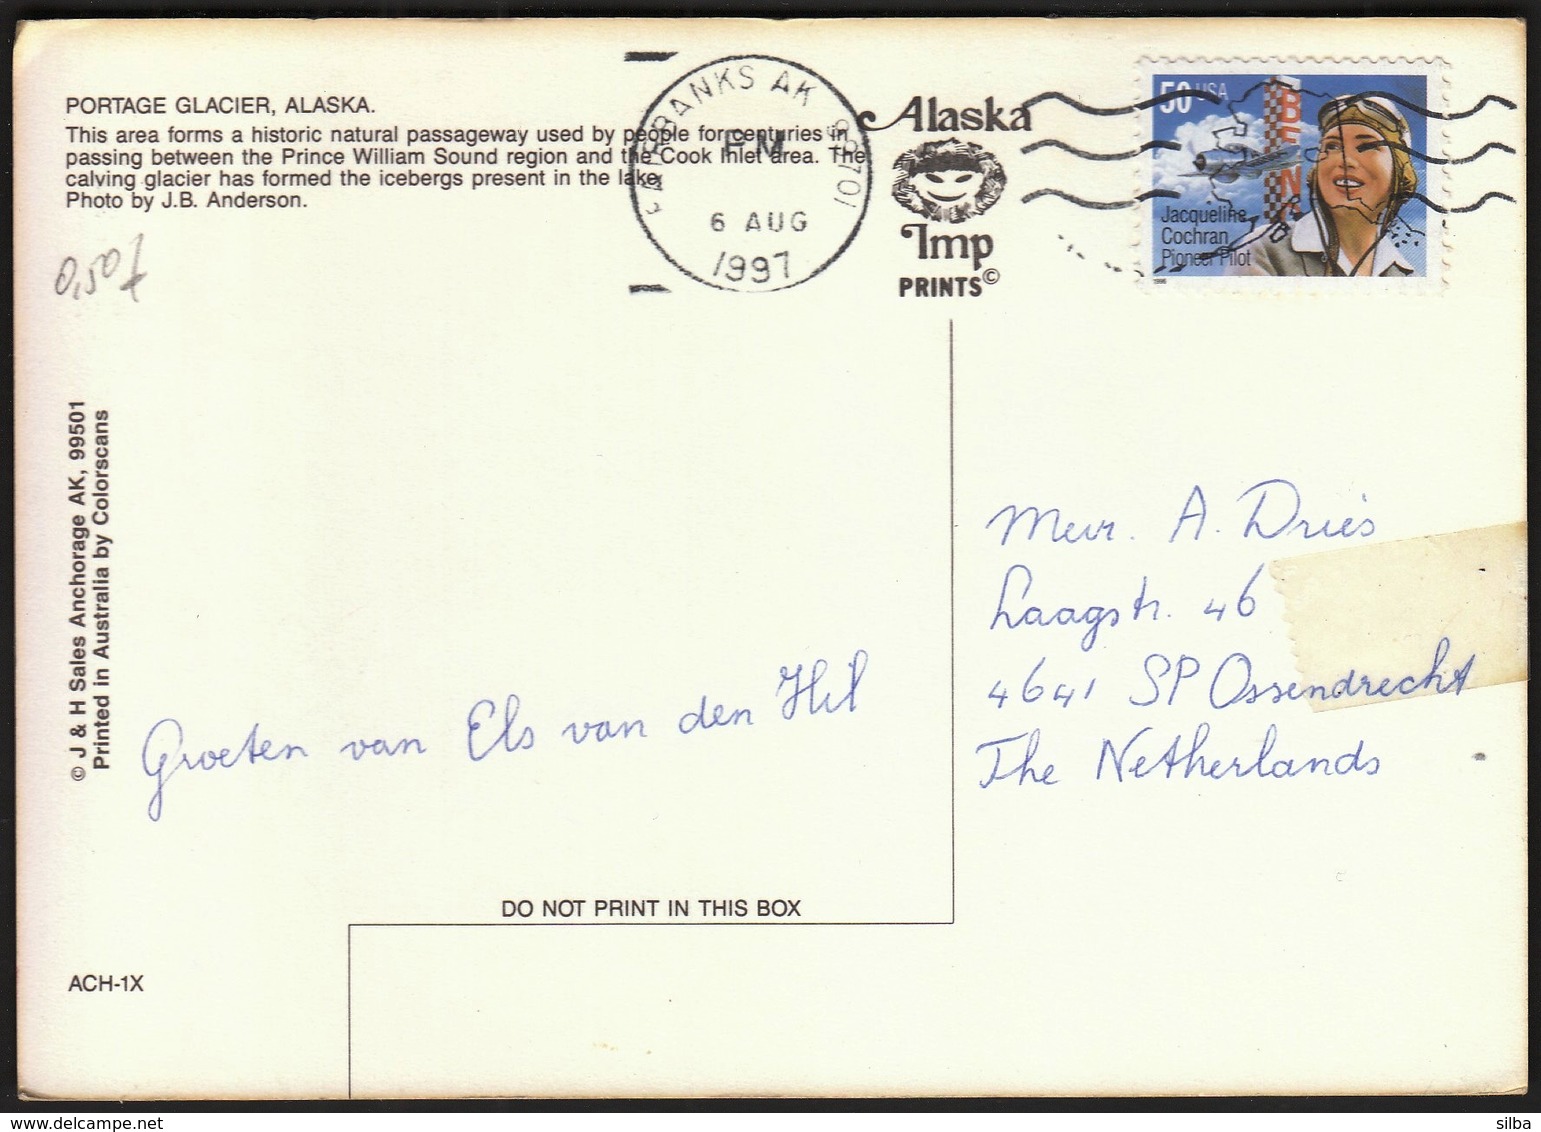 PORTAGE GLACIER, ALASKA.
This area forms a historic natural passageway used by people for centuries in
passing between the Prince William Sound region and the Cook Inlet area. The
calving glacier has formed the icebergs present in the lake.
Photo by J.B. Anderson.
0,50
FAIRBANKS AK 99701
PM
6 AUG
1997
Alaska
Imp
PRINTS©
50 USA
BEN
Jacqueline
Cochran
Pioneer Pilot
1996
© J & H Sales Anchorage AK, 99501
Printed in Australia by Colorscans
Groeten van Els van den Hil
Mevr. A. Dries
Laagstr. 46
4641 SP Ossendrecht
The Netherlands
DO NOT PRINT IN THIS BOX
ACH-1X
delcampe.net
silba